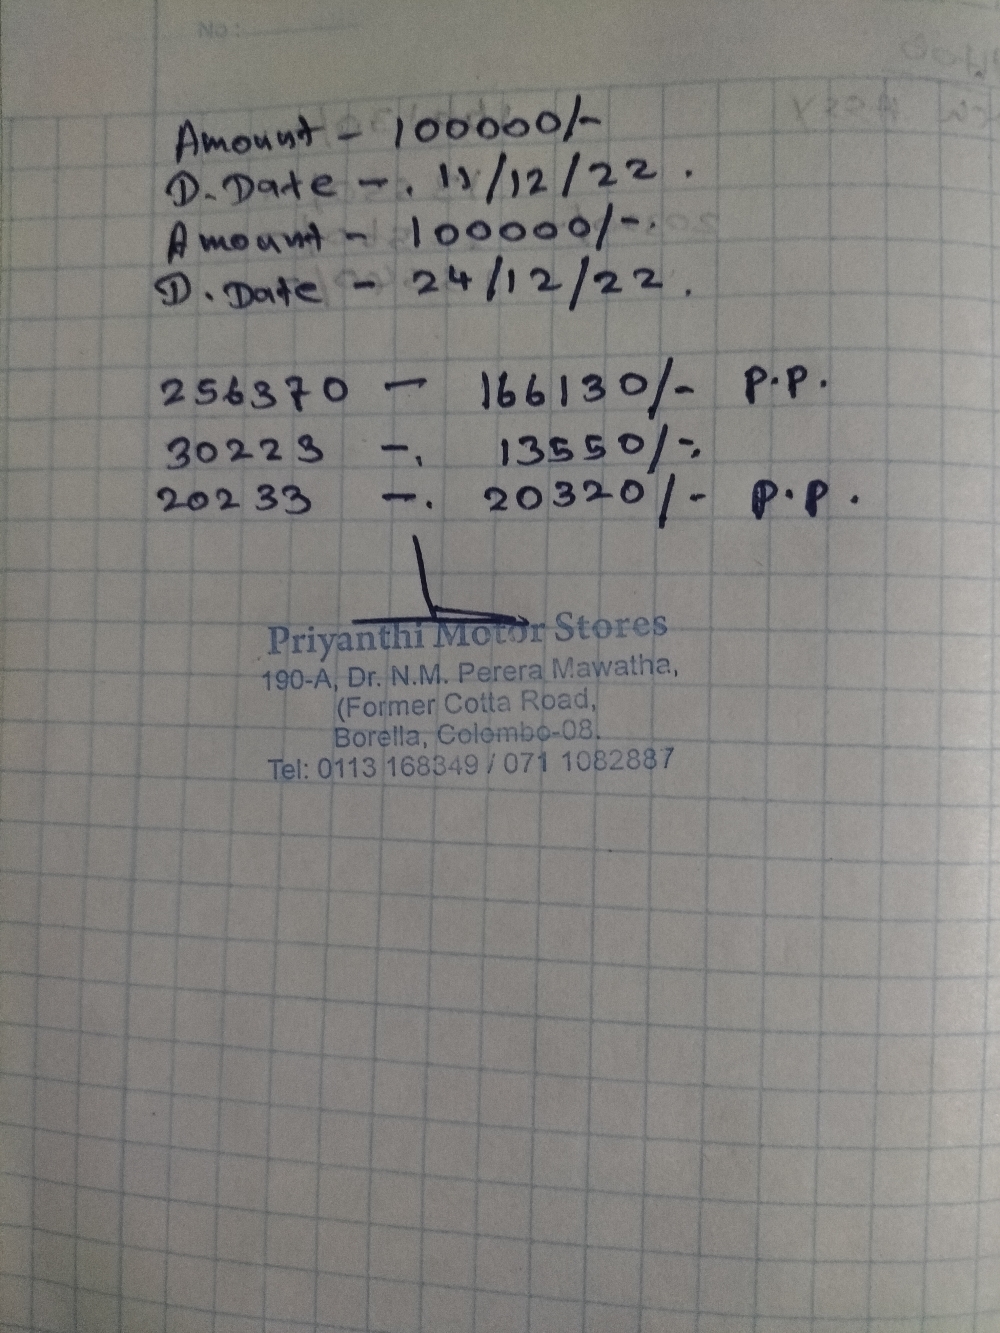 No:
Amount - 100000/-
D. Date -. 11/12/22.
Amount - 100000/-.
D. Date - 24/12/22.
256370 - 166130/- P.P.
30223 -. 13550/-.
20233 -. 20320/- P.P.
Priyanthi Motor Stores
190-A, Dr. N.M. Perera Mawatha,
(Former Cotta Road,
Borella, Colombo-08.
Tel: 0113 168349 / 071 1082887